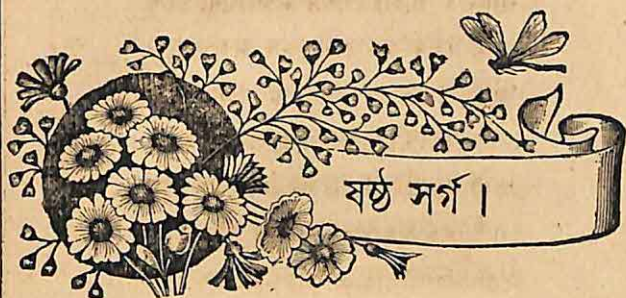 ষষ্ঠ সর্গ।